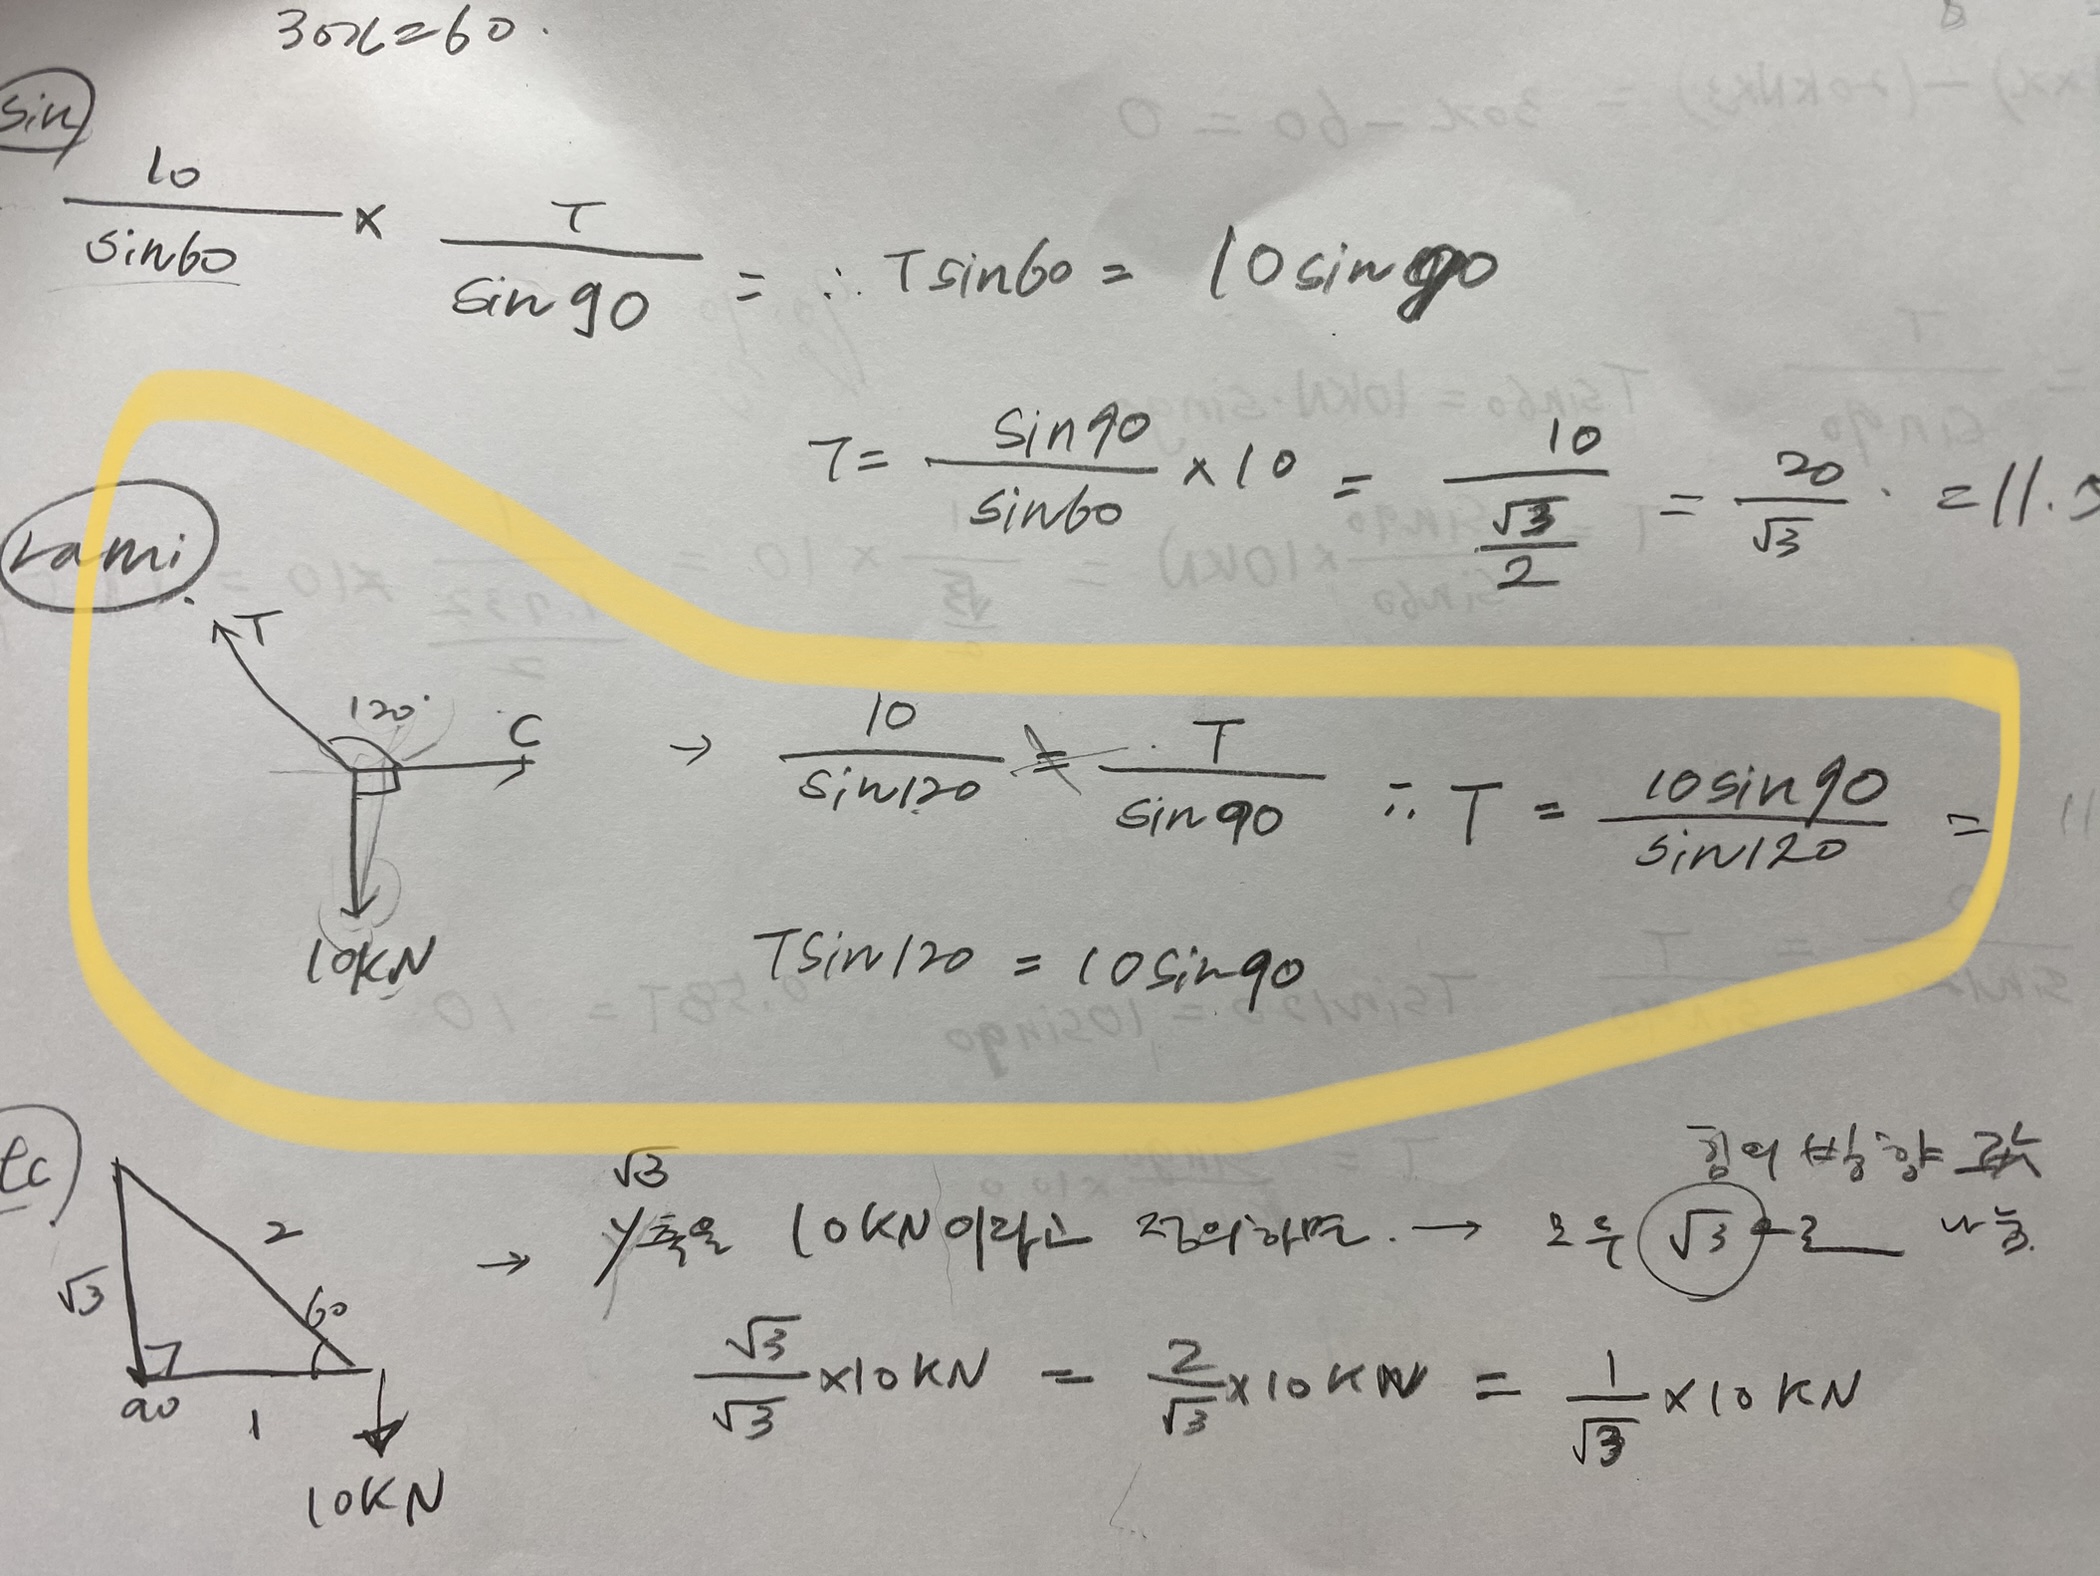 30x=60.
sin
10/sin60 × T/sin90 = ∴ Tsin60 = 10sin90
T= sin90/sin60 ×10 = 10/(√3/2) = 20/√3 . =11.5
Lami
T
120°
C
10KN
→ 10/sin120 = T/sin90 ∴ T = 10sin90/sin120 =
Tsin120 = 10sin90
힘의 방향
√3
y축을 10KN이라고 정의하면. → 모두 √3으로 나눔.
2
√3
60
90
1
10KN
√3/√3 ×10KN = 2/√3 ×10KN = 1/√3 ×10KN